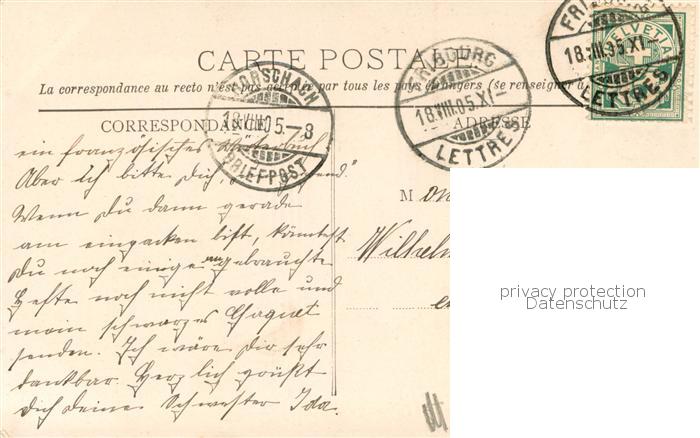 CARTE POSTALE
La correspondance au recto n'est pas acceptée par tous les pays étrangers (se renseigner à
CORRESPONDANCE
ADRESSE
RORSCHACH
18.VIII.05.-8
BRIEFPOST
FRIBOURG
18.VIII.05.XI
LETTRES
FRIBOURG
18.VIII.05.XI
LETTRES
HELVETIA
ein französisches
Aber ich bitte Dich,
Wenn Du dann gerade
am einpacken bist, könntest
Du noch einige angebrauchte
Hefte noch nicht volle und
mein schwarzes Jaquet
senden. Ich wäre Dir sehr
dankbar. Herzlich grüßt
Dich Deine Schwester Ida.
Mon
Wilhelm
privacy protection
Datenschutz